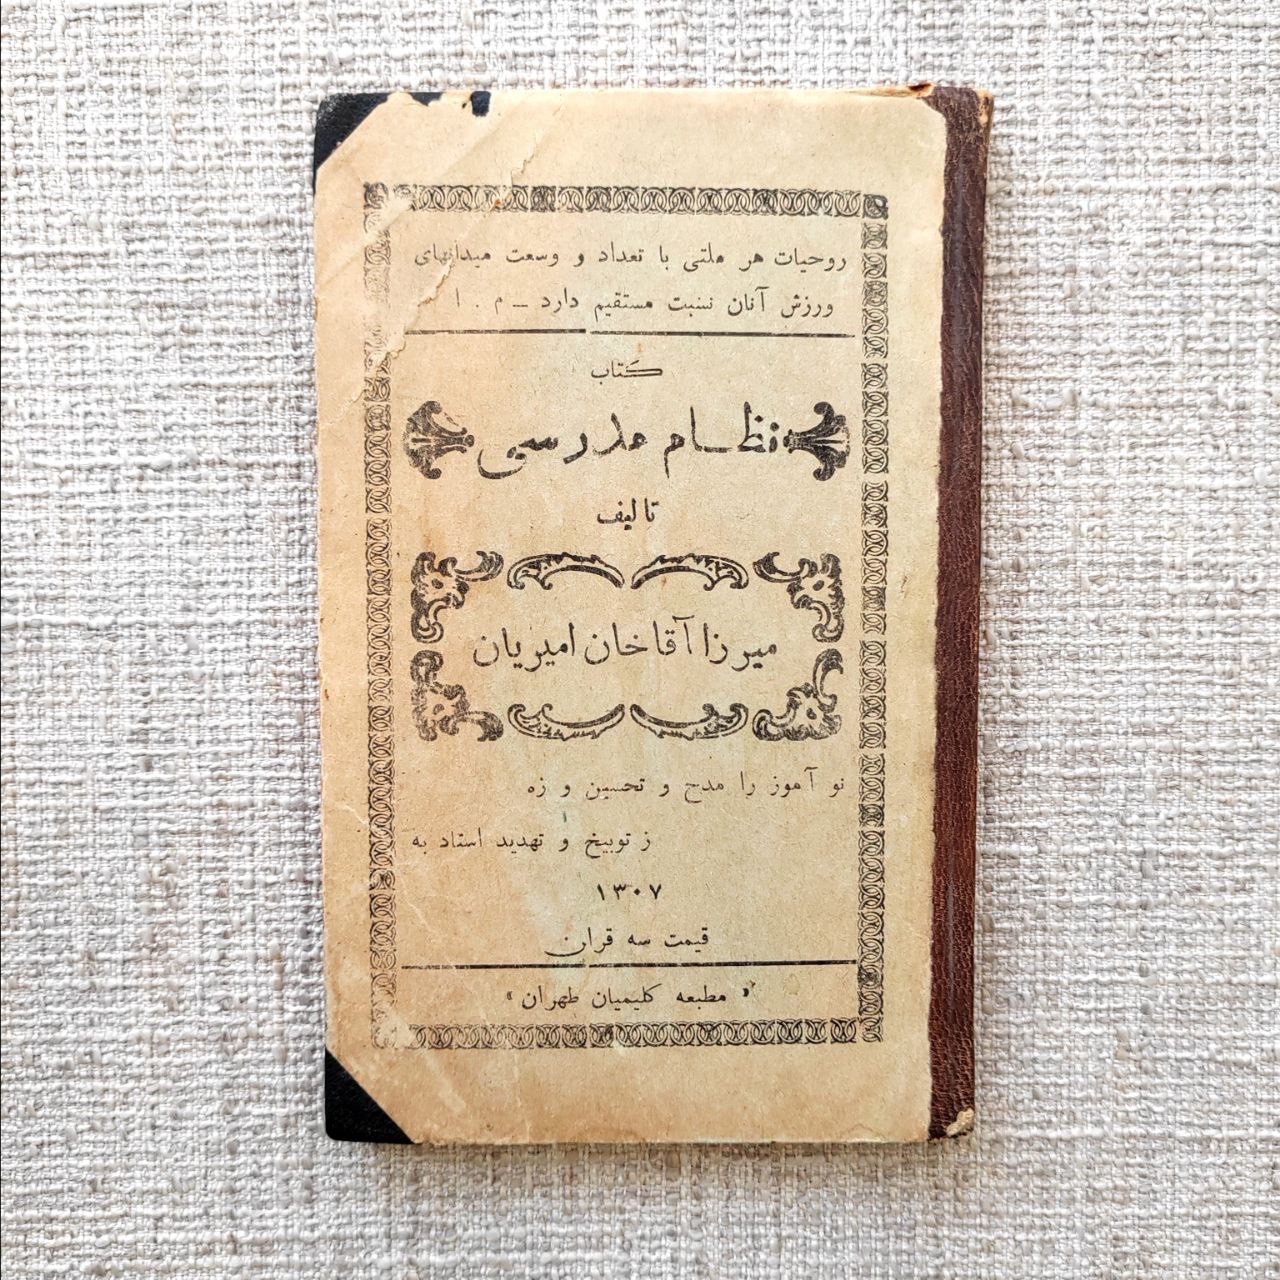 روحیات هر ملتی با تعداد و وسعت میدانهای
ورزش آنان نسبت مستقیم دارد ــ م . ا
کتاب
نظام مدرسی
تالیف
میرزا آقاخان امیریان
نو آموز را مدح و تحسین و زه
ز توبیخ و تهدید استاد به
۱۳۰۷
قیمت سه قران
« مطبعه کلیمیان طهران »